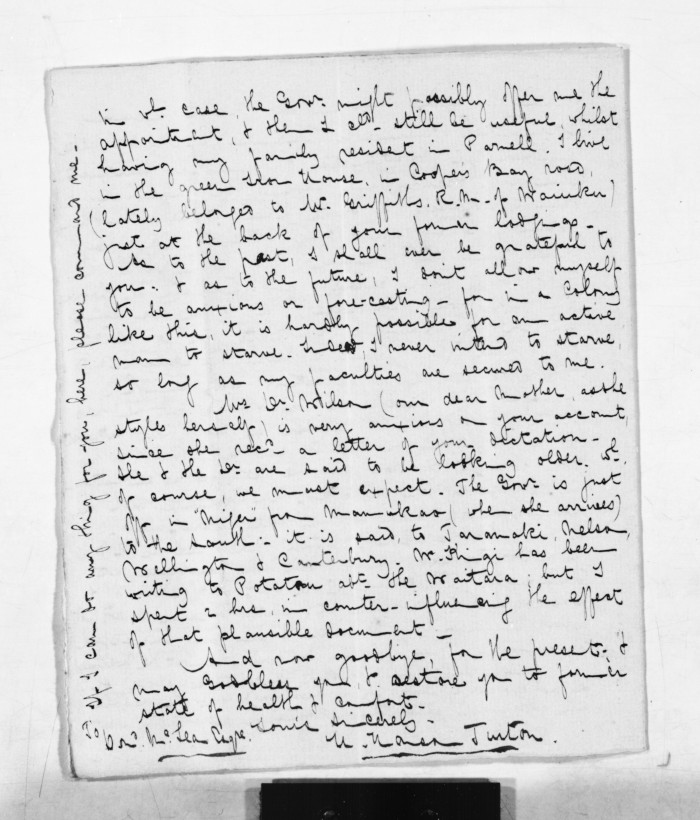 in wh. case, the Govr. might possibly offer me the
appointment, & then I cld. still be useful, whilst
having my family resident in Parnell. I live
in the green Iron House, in Cooper's Bay road,
(lately belonged to Mr. Griffiths, R.M. of Waiuku)
just at the back of your former lodgings.
As to the past, I shall ever be grateful to
you: & as to the future, I don't allow myself
to be anxious or fore-casting - for in a Colony
like this, it is hardly possible for an active
man to starve. Indeed, I never intend to starve,
so long as my faculties are secured to me.
Mrs. Dr. Wilson (our dear Mother, as she
styles herself) is very anxious on your account,
since she recd. a letter of your dictation -
She & the Dr. are said to be looking older. wh.,
of course, we must expect. The Govr. is just
off in "Niger" from Manukau (when she arrives)
to the South - it is said, to Taranaki, Nelson,
Wellington & Canterbury. W. Kingi has been
writing to Potatau abt. the Waitara, but I
spent 2 hrs. in counter-influencing the effect
of that plausible document -
And now goodbye, for the present, &
may God bless you, & restore you to former
state of health & comfort.
Yours sincerely -
H. Hanson Turton.
To Don. McLean Esqre.
If I can do any thing for you, here, please command me -